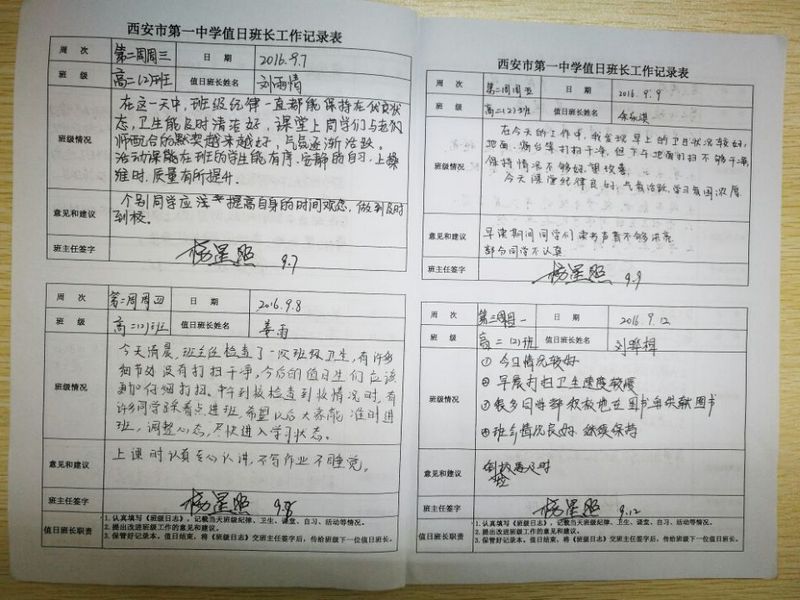 西安市第一中学值日班长工作记录表
周 次 第二周周三 日 期 2016.9.7
班 级 高二(2)班 值日班长姓名 刘雨情
班级情况
在这一天中,班级纪律一直都能保持在优良状
态,卫生能及时清洁好,课堂上同学们与老们
师配合的默契越来越好,气氛逐渐活跃。
活动课能在班的学生能有序、安静的自习.上操
准时.质量有所提升.
意见和建议
个别同学应注意提高自身的时间观念,做到及时
到校.
班主任签字 杨星照 9.7
周 次 第二周周四 日 期 2016.9.8
班 级 高二(2)班 值日班长姓名 姜雨
班级情况
今天清晨,班主任检查了一次班级卫生,有许多
细节处没有打扫干净,今后的值日生们应该
更加仔细打扫.中午到校检查到校情况时,有
许多同学踩着点进班,希望以后大家能准时进
班,调整心态,尽快进入学习状态。
意见和建议
上课时认真专心认讲,不写作业不睡觉。
班主任签字 杨星照 9.8
值日班长职责
1.认真填写《班级日志》,记载当天班级纪律、卫生、课堂、自习、活动等情况。
2.提出改进班级工作的意见和建议。
3.保管好记录本。值日结束,将《班级日志》交班主任签字后,传给班级下一位值日班长。
西安市第一中学值日班长工作记录表
周 次 第二周周五 日 期 2016.9.9
班 级 高二(2)班 值日班长姓名
班级情况
在今天的工作中,我发现早上的卫日状况较好,
地面、窗台等打扫干净,但下午地面打扫不够干净,
保持情况不够好.望改善.
今天课堂纪律良好,气氛活跃,学习氛围浓厚
意见和建议
早读期间同学们读书声音不够洪亮
部分同学不认真
班主任签字 杨星照 9.9
周 次 第三周周一 日 期 2016.9.12
班 级 高二(2)班 值日班长姓名 刘晔樟
班级情况
① 今日情况较好
② 早晨打扫卫生速度较慢
③ 很多同学都积极地在图书角贡献图书
④ 班会情况良好 继续保持
意见和建议
到校要及时
班主任签字 杨星照 9.12
值日班长职责
1.认真填写《班级日志》,记载当天班级纪律、卫生、课堂、自习、活动等情况。
2.提出改进班级工作的意见和建议。
3.保管好记录本。值日结束,将《班级日志》交班主任签字后,传给班级下一位值日班长。